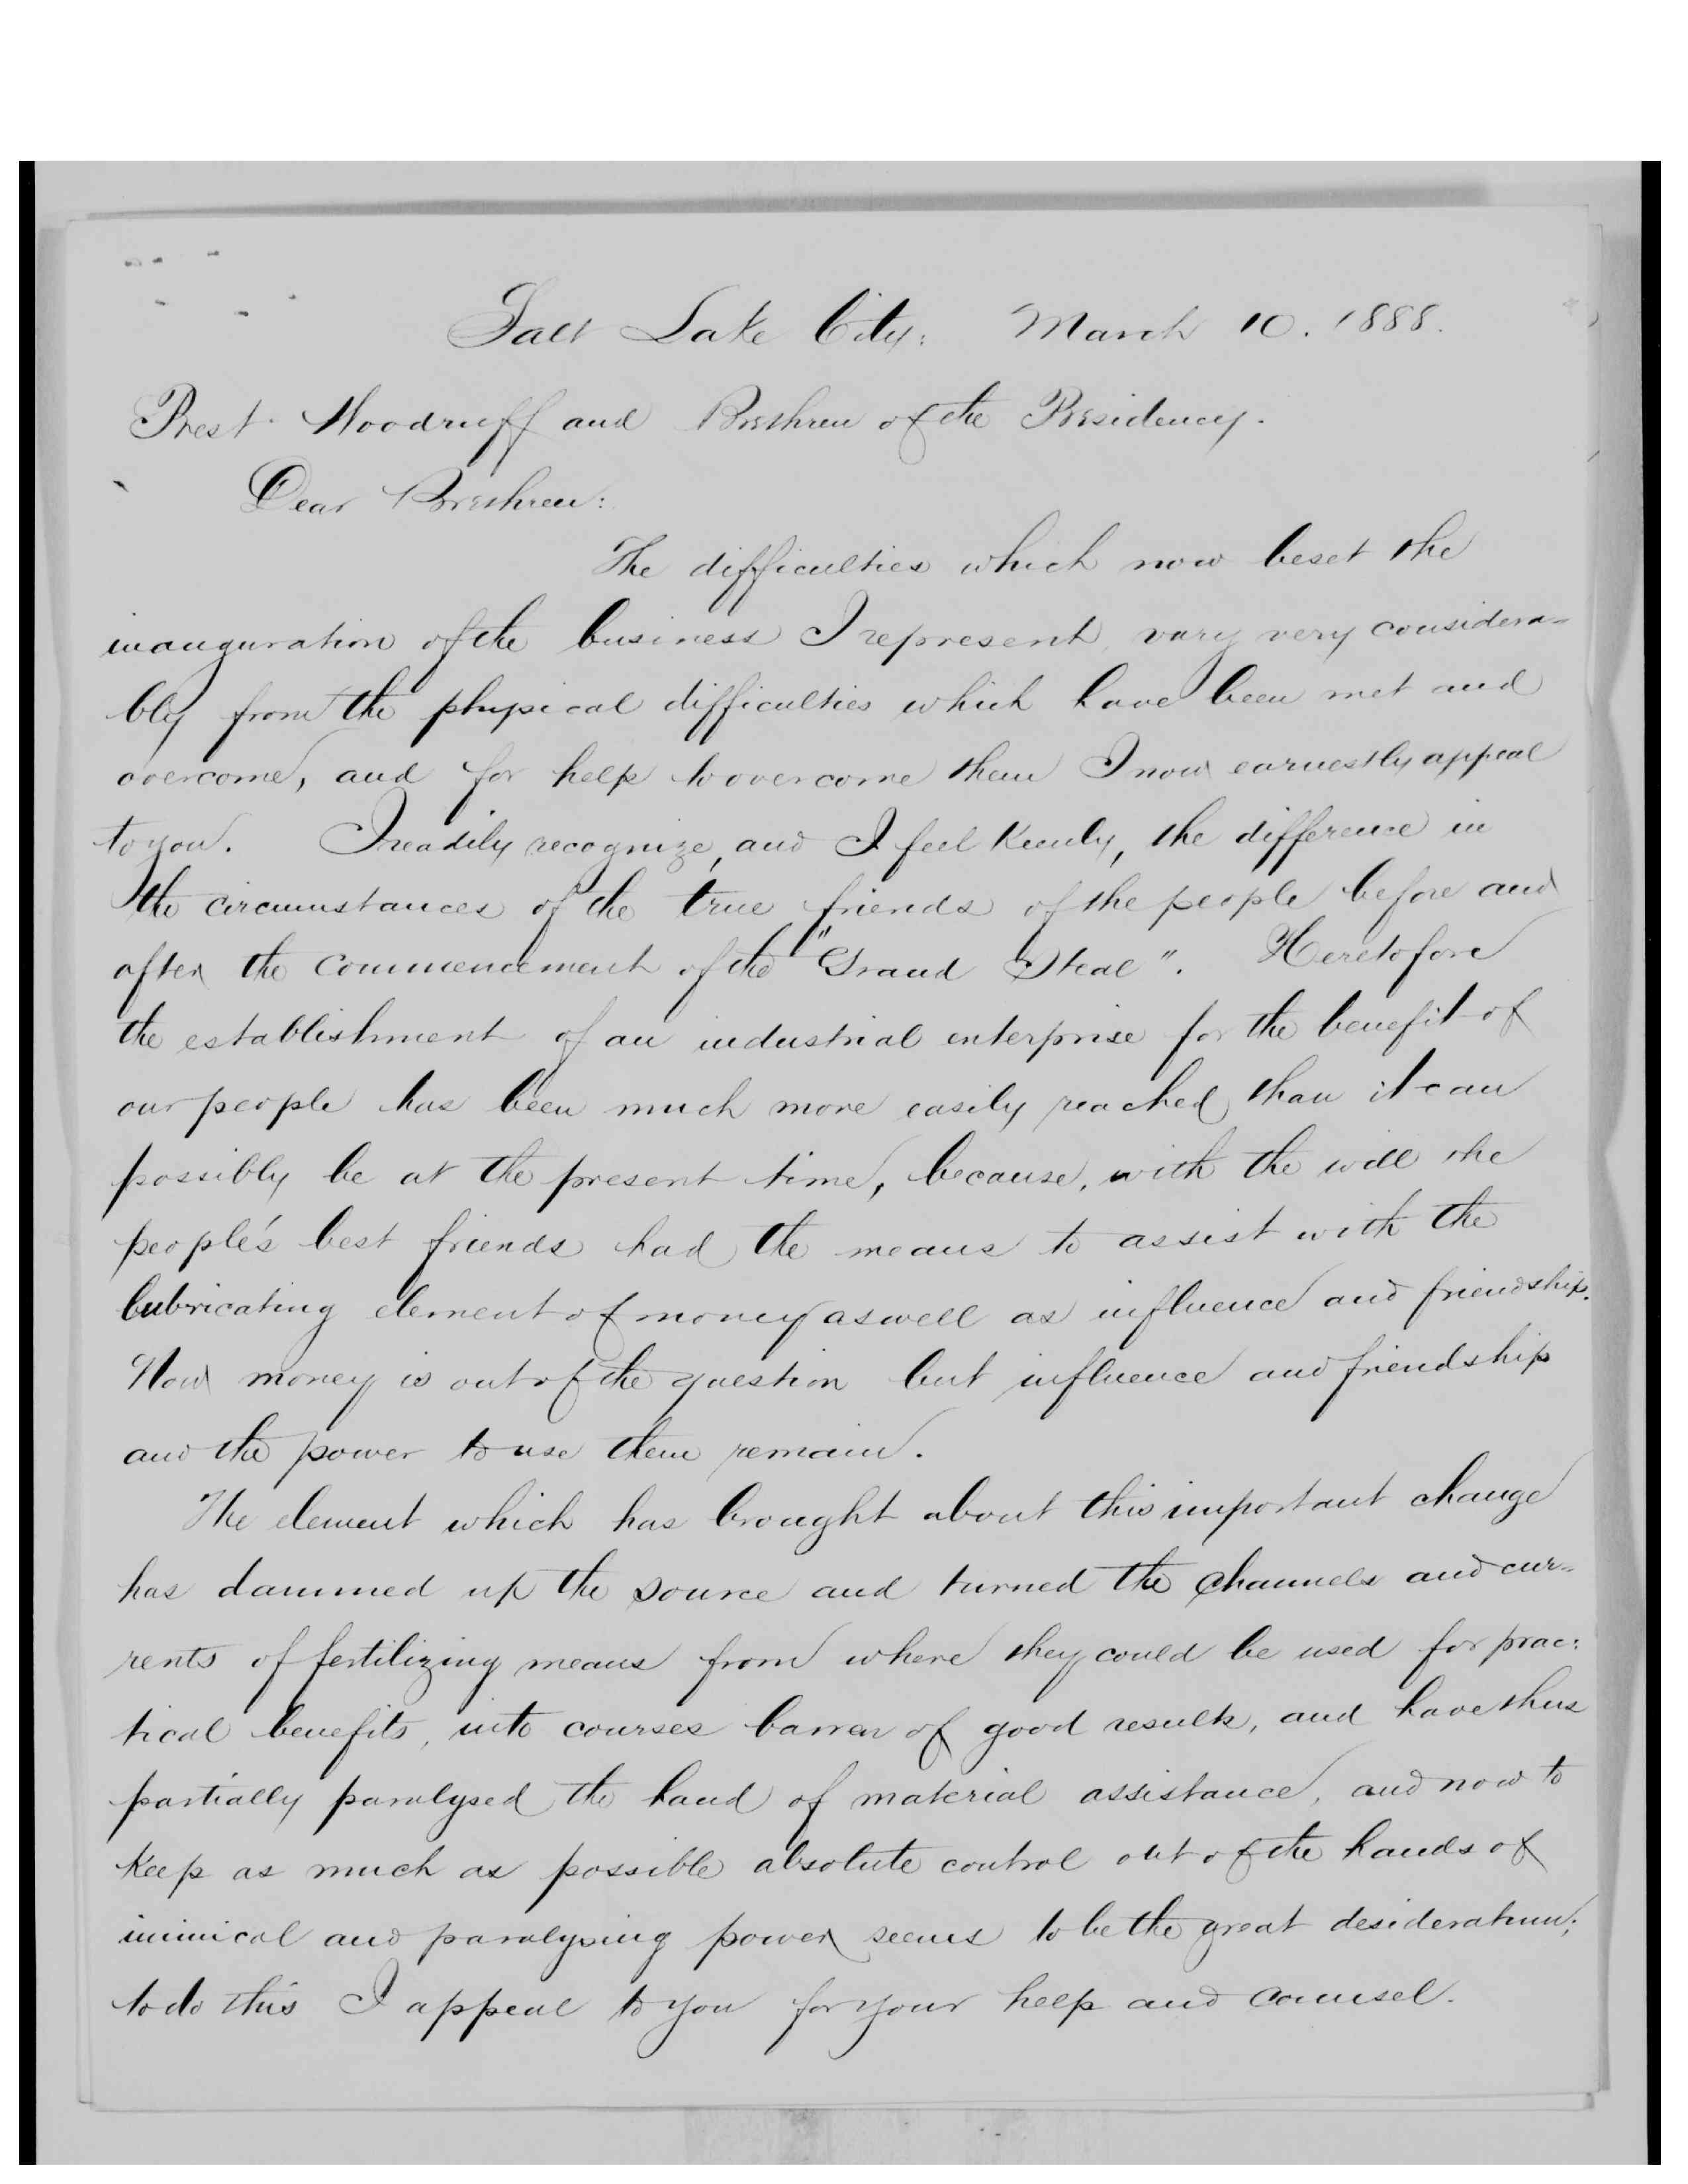 Salt Lake City: March 10. 1888.
Prest. Woodruff and Brethren of the Presidency.
Dear Brethren:
The difficulties which now beset the
inauguration of the business I represent, vary very considera-
bly from the physical difficulties which have been met and
overcome, and for help to overcome them I now earnestly appeal
to you. I readily recognize, and I feel keenly, the difference in
the circumstances of the true friends of the people before and
after the commencement of the "Grand Steal". Heretofore
the establishment of an industrial enterprise for the benefit of
our people has been much more easily reached than it can
possibly be at the present time, because, with the will the
people's best friends had the means to assist with the
lubricating element of money as well as influence and friendship.
Now money is out of the question but influence and friendship
and the power to use them remain.
The element which has brought about this important change
has dammed up the source and turned the channels and cur-
rents of fertilizing means from where they could be used for prac:
tical benefits, into courses barren of good results, and have thus
partially paralysed the hand of material assistance, and now to
keep as much as possible absolute control out of the hands of
inimical and paralysing power seems to be the great desideratum;
to do this I appeal to you for your help and counsel.